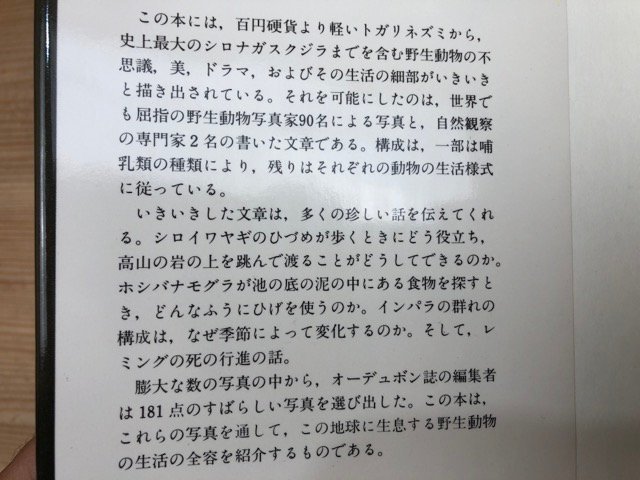 この本には，百円硬貨より軽いトガリネズミから，
史上最大のシロナガスクジラまでを含む野生動物の不
思議，美，ドラマ，およびその生活の細部がいきいき
と描き出されている。それを可能にしたのは，世界で
も屈指の野生動物写真家90名による写真と，自然観察
の専門家２名の書いた文章である。構成は，一部は哺
乳類の種類により，残りはそれぞれの動物の生活様式
に従っている。
いきいきした文章は，多くの珍しい話を伝えてくれ
る。シロイワヤギのひづめが歩くときにどう役立ち，
高山の岩の上を跳んで渡ることがどうしてできるのか。
ホシバナモグラが池の底の泥の中にある食物を探すと
き，どんなふうにひげを使うのか。インパラの群れの
構成は，なぜ季節によって変化するのか。そして，レ
ミングの死の行進の話。
膨大な数の写真の中から，オーデュボン誌の編集者
は181点のすばらしい写真を選び出した。この本は，
これらの写真を通して，この地球に生息する野生動物
の生活の全容を紹介するものである。